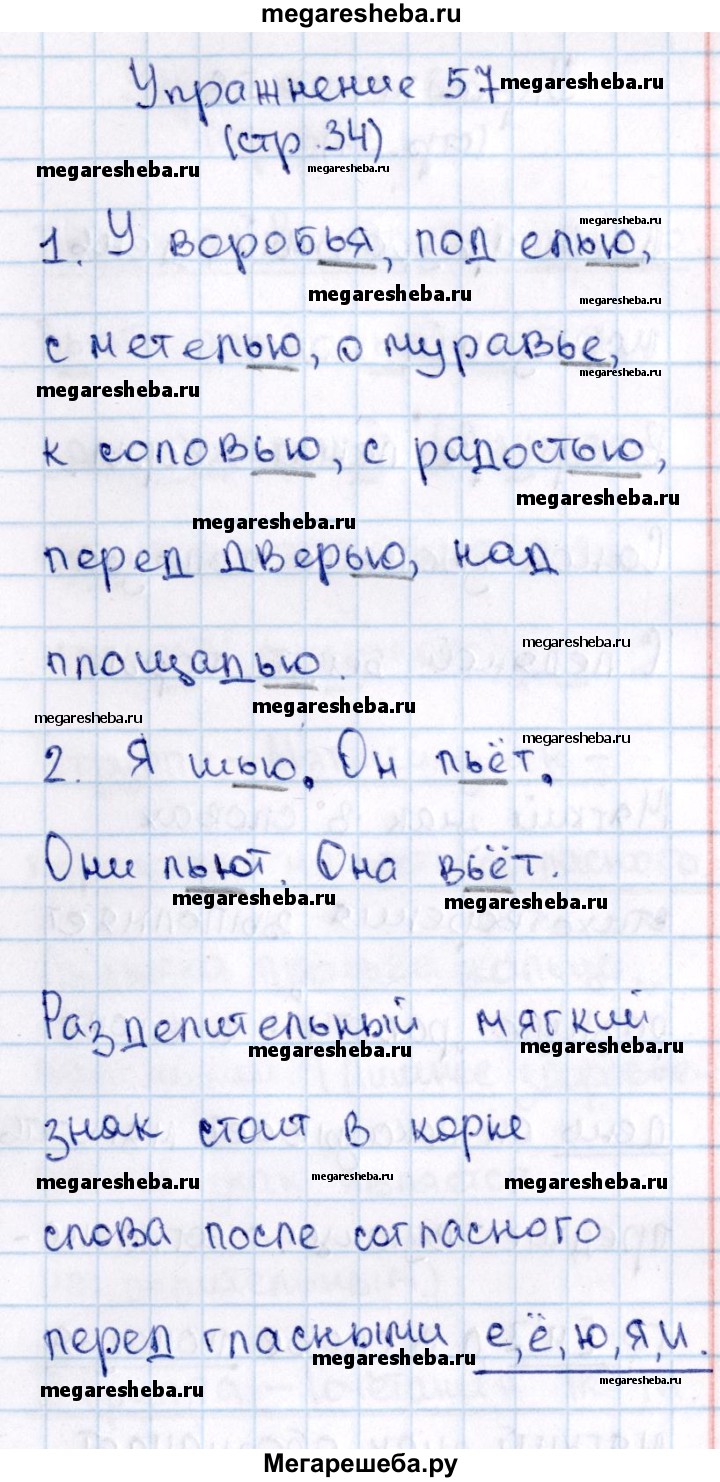 megaresheba.ru
Упражнение 57 megaresheba.ru
(стр.34)
megaresheba.ru megaresheba.ru
megaresheba.ru
1. У воробья, под елью,
megaresheba.ru megaresheba.ru
с метелью, о муравье,
megaresheba.ru megaresheba.ru
к соловью, с радостью,
megaresheba.ru
megaresheba.ru
перед дверью, над
megaresheba.ru
площадью.
megaresheba.ru megaresheba.ru
megaresheba.ru
2. Я шью. Он пьёт.
Они пьют. Она вьёт.
megaresheba.ru megaresheba.ru
Разделительный мягкий
megaresheba.ru megaresheba.ru
знак стоит в корне
megaresheba.ru megaresheba.ru megaresheba.ru
слова после согласного
перед гласными е, ё, ю, я, и.
megaresheba.ru megaresheba.ru
Мегарешеба.ру